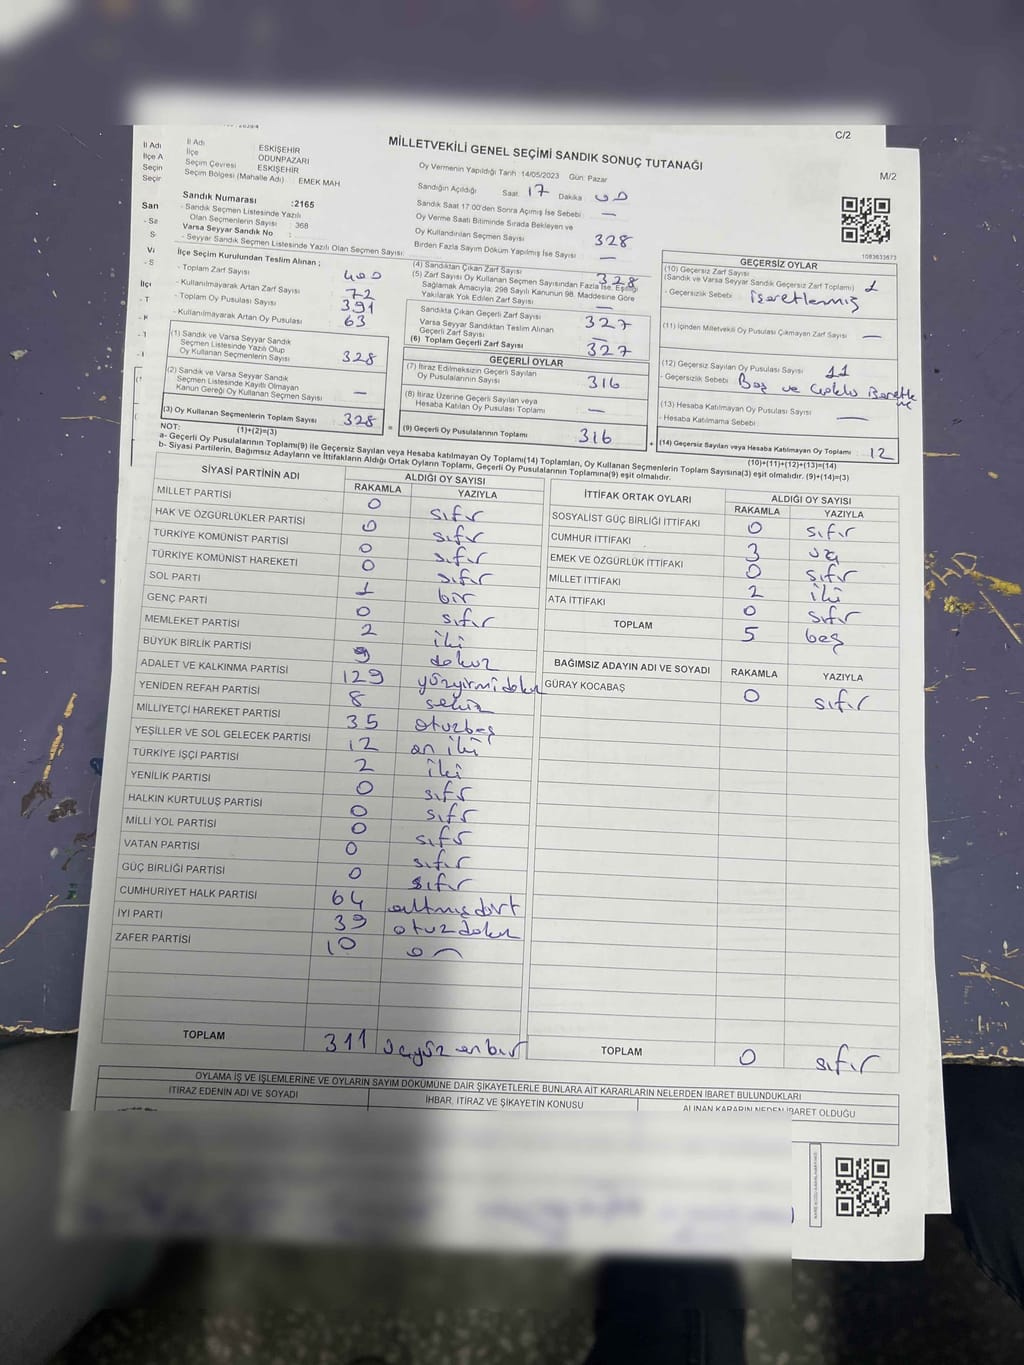 C/2
MİLLETVEKİLİ GENEL SEÇİMİ SANDIK SONUÇ TUTANAĞI
M/2
İl Adı : ESKİŞEHİR
İlçe : ODUNPAZARI
Seçim Çevresi : ESKİŞEHİR
Seçim Bölgesi (Mahalle Adı) : EMEK MAH
Sandık Numarası :2165
- Sandık Seçmen Listesinde Yazılı
Olan Seçmenlerin Sayısı : 368
Varsa Seyyar Sandık No :
- Seyyar Sandık Seçmen Listesinde Yazılı Olan Seçmen Sayısı:
Oy Vermenin Yapıldığı Tarih :14/05/2023 Gün: Pazar
Sandığın Açıldığı Saat: 17 Dakika 00
Sandık Saat 17:00'den Sonra Açımış İse Sebebi : —
Oy Verme Saati Bitiminde Sırada Bekleyen ve
Oy Kullandırılan Seçmen Sayısı 328
Birden Fazla Sayım Döküm Yapılmış İse Sayısı : —
1083633673
İlçe Seçim Kurulundan Teslim Alınan ;
- Toplam Zarf Sayısı 400
- Kullanılmayarak Artan Zarf Sayısı 72
- Toplam Oy Pusulası Sayısı 391
- Kullanılmayarak Artan Oy Pusulası 63
(1) Sandık ve Varsa Seyyar Sandık
Seçmen Listesinde Yazılı Olup
Oy Kullanan Seçmenlerin Sayısı 328
(2) Sandık ve Varsa Seyyar Sandık
Seçmen Listesinde Kayıtlı Olmayan
Kanun Gereği Oy Kullanan Seçmen Sayısı —
(3) Oy Kullanan Seçmenlerin Toplam Sayısı 328
(1)+(2)=(3)
(4) Sandıktan Çıkan Zarf Sayısı 328
(5) Zarf Sayısı Oy Kullanan Seçmen Sayısından Fazla İse, Eşitliği
Sağlamak Amacıyla, 298 Sayılı Kanunun 98. Maddesine Göre
Yakılarak Yok Edilen Zarf Sayısı —
Sandıkta Çıkan Geçerli Zarf Sayısı 327
Varsa Seyyar Sandıktan Teslim Alınan
Geçerli Zarf Sayısı —
(6) Toplam Geçerli Zarf Sayısı 327
GEÇERLİ OYLAR
(7) İtiraz Edilmeksizin Geçerli Sayılan
Oy Pusulalarının Sayısı 316
(8) İtiraz Üzerine Geçerli Sayılan veya
Hesaba Katılan Oy Pusulası Toplamı —
(9) Geçerli Oy Pusulalarının Toplamı 316
GEÇERSİZ OYLAR
(10) Geçersiz Zarf Sayısı
(Sandık ve Varsa Seyyar Sandık Geçersiz Zarf Toplamı) 1
- Geçersizlik Sebebi : işaretlenmiş
(11) İçinden Milletvekili Oy Pusulası Çıkmayan Zarf Sayısı —
(12) Geçersiz Sayılan Oy Pusulası Sayısı 11
- Geçersizlik Sebebi : Boş ve
(13) Hesaba Katılmayan Oy Pusulası Sayısı —
- Hesaba Katılmama Sebebi :
(14) Geçersiz Sayılan veya Hesaba Katılmayan Oy Toplamı 12
(10)+(11)+(12)+(13)=(14)
NOT:
a- Geçerli Oy Pusulaları Toplamı(9) ile Geçersiz Sayılan veya Hesaba katılmayan Oy Toplamı(14) Toplamları, Oy Kullanan Seçmenlerin Toplam Sayısına(3) eşit olmalıdır. (9)+(14)=(3)
b- Siyasi Partilerin, Bağımsız Adayların ve İttifakların Aldığı Ortak Oyların Toplamı, Geçerli Oy Pusulalarının Toplamına(9) eşit olmalıdır.
SİYASİ PARTİNİN ADI ALDIĞI OY SAYISI
RAKAMLA YAZIYLA
MİLLET PARTİSİ 0 sıfır
HAK VE ÖZGÜRLÜKLER PARTİSİ 0 sıfır
TÜRKİYE KOMÜNİST PARTİSİ 0 sıfır
TÜRKİYE KOMÜNİST HAREKETİ 0 sıfır
SOL PARTİ 1 bir
GENÇ PARTİ 0 sıfır
MEMLEKET PARTİSİ 2 iki
BÜYÜK BİRLİK PARTİSİ 9 dokuz
ADALET VE KALKINMA PARTİSİ 129 yüzyirmidokuz
YENİDEN REFAH PARTİSİ 8 sekiz
MİLLİYETÇİ HAREKET PARTİSİ 35 otuzbeş
YEŞİLLER VE SOL GELECEK PARTİSİ 12 on iki
TÜRKİYE İŞÇİ PARTİSİ 2 iki
YENİLİK PARTİSİ 0 sıfır
HALKIN KURTULUŞ PARTİSİ 0 sıfır
MİLLİ YOL PARTİSİ 0 sıfır
VATAN PARTİSİ 0 sıfır
GÜÇ BİRLİĞİ PARTİSİ 0 sıfır
CUMHURİYET HALK PARTİSİ 64 altmışdört
İYİ PARTİ 39 otuzdokuz
ZAFER PARTİSİ 10 on
TOPLAM 311 üçyüz onbir
İTTİFAK ORTAK OYLARI ALDIĞI OY SAYISI
RAKAMLA YAZIYLA
SOSYALİST GÜÇ BİRLİĞİ İTTİFAKI 0 sıfır
CUMHUR İTTİFAKI 3 üç
EMEK VE ÖZGÜRLÜK İTTİFAKI 0 sıfır
MİLLET İTTİFAKI 2 iki
ATA İTTİFAKI 0 sıfır
TOPLAM 5 beş
BAĞIMSIZ ADAYIN ADI VE SOYADI RAKAMLA YAZIYLA
GÜRAY KOCABAŞ 0 sıfır
TOPLAM 0 sıfır
OYLAMA İŞ VE İŞLEMLERİNE VE OYLARIN SAYIM DÖKÜMÜNE DAİR ŞİKAYETLERLE BUNLARA AİT KARARLARIN NELERDEN İBARET BULUNDUKLARI
İTİRAZ EDENİN ADI VE SOYADI İHBAR, İTİRAZ VE ŞİKAYETİN KONUSU ALINAN KARARIN NEDEN İBARET OLDUĞU